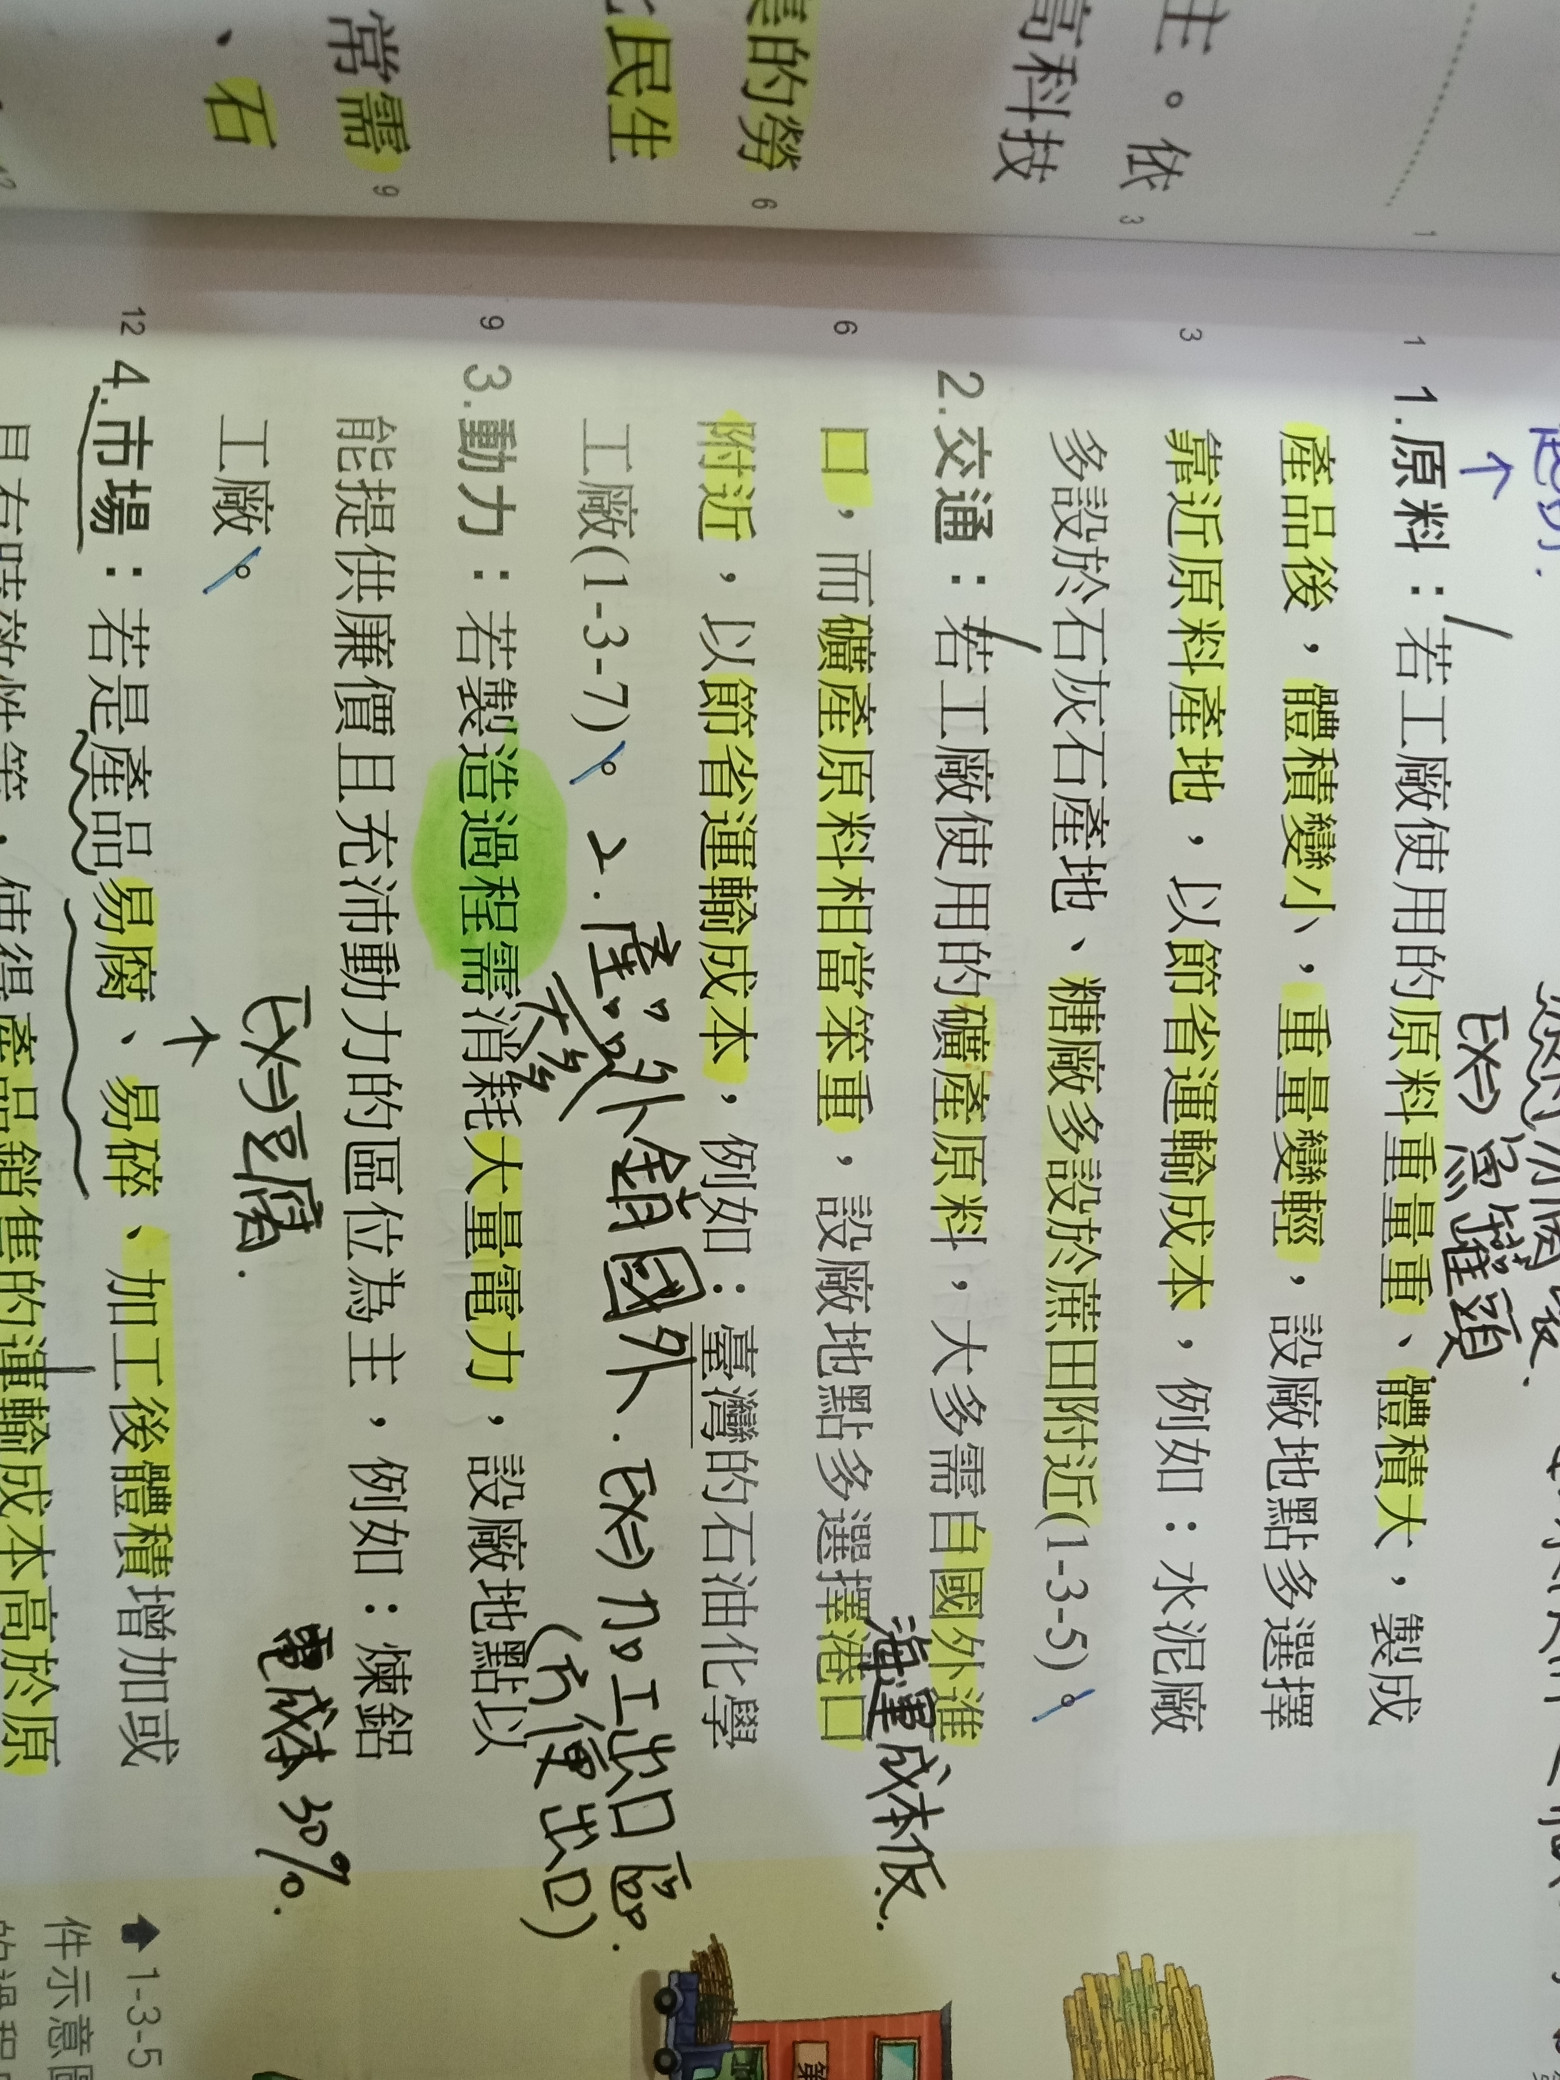 主。依 3
高科技
的勞 6
民生
常需 9
、石
1 1.原料：若工廠使用的原料重量重、體積大，製成
產品後，體積變小，重量變輕，設廠地點多選擇
3 靠近原料產地，以節省運輸成本，例如：水泥廠
多設於石灰石產地、糖廠多設於蔗田附近(1-3-5)。
2.交通：若工廠使用的礦產原料，大多需自國外進
6 口，而礦產原料相當笨重，設廠地點多選擇港口
附近，以節省運輸成本，例如：臺灣的石油化學
工廠(1-3-7)。
9 3.動力：若製造過程需消耗大量電力，設廠地點以
能提供廉價且充沛動力的區位為主，例如：煉鋁
工廠。
12 4.市場：若是產品易腐、易碎、加工後體積增加或
具有時效性等，使得產品銷售的運輸成本高於原
EX⇒魚罐頭
海運成本低.
2.產品外銷國外.EX⇒加工出口區.
(方便出口)
EX⇒豆腐.
電成本30%.
1-3-5